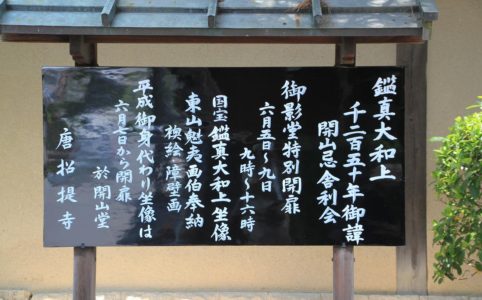 鑑真大和上
千二百五十年御諱
開山忌舎利会
御影堂特別開扉
六月五日〜九日
九時〜十六時
国宝鑑真大和上坐像
東山魁夷画伯奉納
襖絵・障壁画
平成御身代わり坐像は
六月七日から開扉
於開山堂
唐招提寺